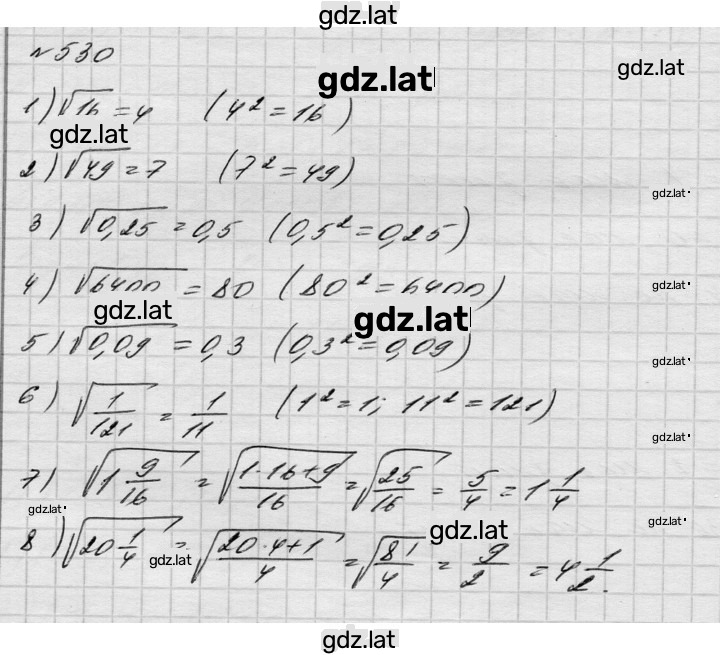 gdz.lat
№530
gdz.lat
gdz.lat
1) √16 = 4 (4² = 16)
gdz.lat
2) √49 = 7 (7² = 49)
gdz.lat
3) √0,25 = 0,5 (0,5² = 0,25)
4) √6400 = 80 (80² = 6400)
gdz.lat
gdz.lat
gdz.lat
5) √0,09 = 0,3 (0,3² = 0,09)
gdz.lat
6) √(1/121) = 1/11 (1² = 1; 11² = 121)
gdz.lat
7) √(1 9/16) = √((1·16+9)/16) = √(25/16) = 5/4 = 1 1/4
gdz.lat
gdz.lat
gdz.lat
8) √(20 1/4) = √((20·4+1)/4) = √(81/4) = 9/2 = 4 1/2.
gdz.lat
gdz.lat